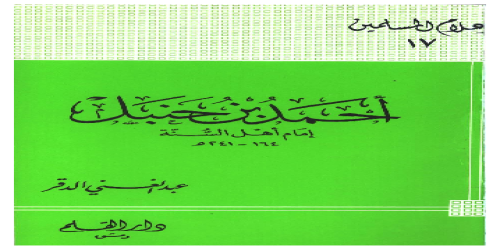 أعلام المسلمين
١٧
أحمد بن حنبل
إمام أهل السنة
١٦٤ - ٢٤١ هـ
عبد الغني الدقر
دار القلم
دمشق